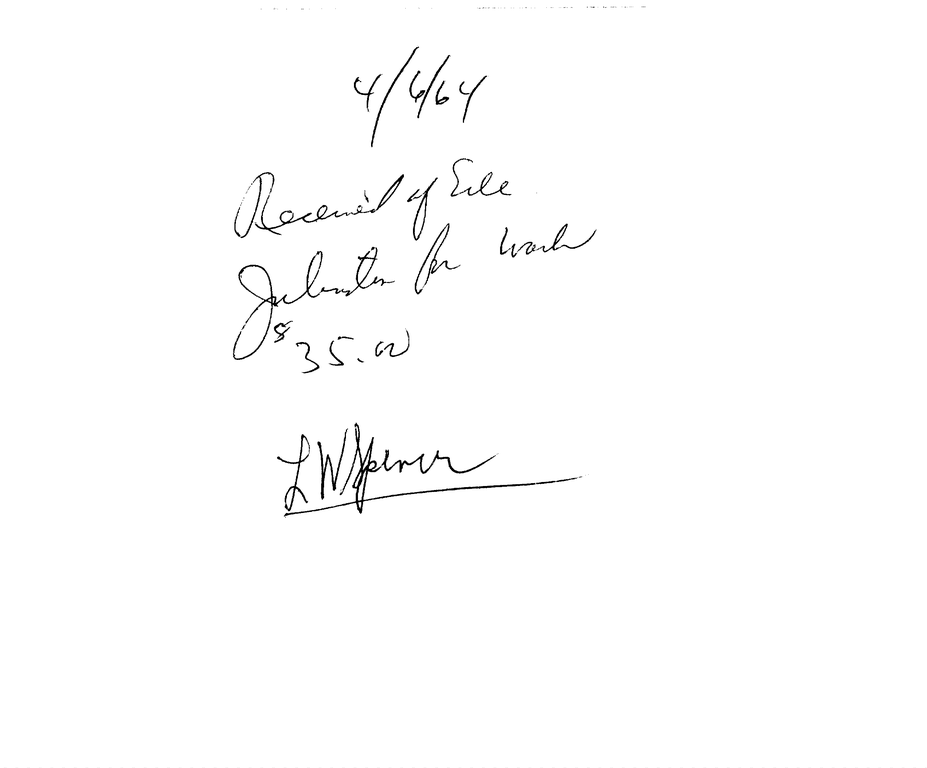 4/6/64
Received of
for work
$35.00
L W Spencer